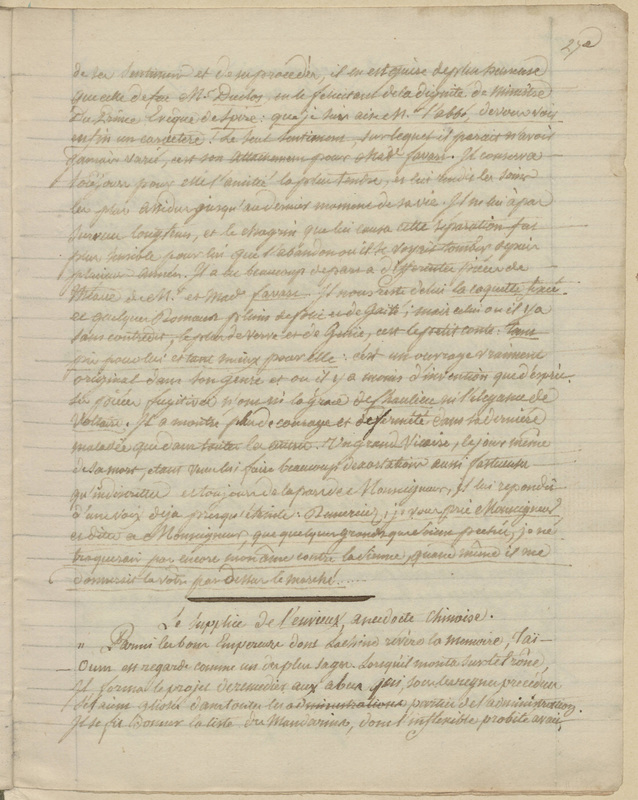 27a
de ses sentimens et de ses procédés, il en est quitte de plus heureuse
que celle de feu Mr. Duclos, en le félicitant de la dignité de Ministre
Prince Evêque de Spire: que je suis aise M. l'abbé, de vous voir
enfin un caractère. Le seul sentiment, sur lequel il parait n'avoir
jamais varié, c'est son attachement pour Made. favart. Il conserva
toujours pour elle l'amitié la plus tendre, et lui rendit les soins
les plus assidus jusqu'au dernier moment de sa vie. Il ne lui a pas
survécu longtems, et le chagrin que lui causa cette séparation fut
plus sensible pour lui que l'abandon où il se voyait tomber depuis
plusieurs années. Il a eu beaucoup de part à différentes pièces de
théatre de Mr. et Made. favart. Il nous reste de lui la coquette fixée
et quelques Romans pleins de folie et de Gaité; mais celui où il y a
sans contredit, le plus de verve et de Génie, c'est le petit conte: Tant
pis pour lui et tant mieux pour elle: c'est un ouvrage vraiment
original dans son genre et où il y a moins d'invention que d'esprit.
Ses pièces fugitives n'ont ni la grace de Chaulieu ni l'élégance de
Voltaire. Il a montré plus de courage et de fermeté dans sa dernière
maladie que dans toutes les autres. Un grand Vicaire, le jour même
de sa mort, étant venu lui faire beaucoup d'exhortations aussi fastueuses
qu'indiscrettes et toujours de la part de Monseigneur, Il lui répondit
d'une voix déja presqu'éteinte: Remerciez, je vous prie Monseigneur
et dites à Monseigneur, que quelque grande que soit sa piété, je ne
troquerais pas encore mon âme contre la sienne, quand même il me
donnerait la votre par dessus le marché....
Le Supplice de l'envieux, anecdote chinoise.
" Parmi les bons Empereurs dont la chine révère la mémoire, Tai-
Oum est regardé comme un des plus sages. Lorsqu'il monta sur le trône,
Il forma le projet de remédier aux abus, qui, sous les regnes précédens
s'étaient glissés dans toutes les administrations parties de l'administration.
Il se fit donner la liste des Mandarins, dont l'inflexible probité avait,